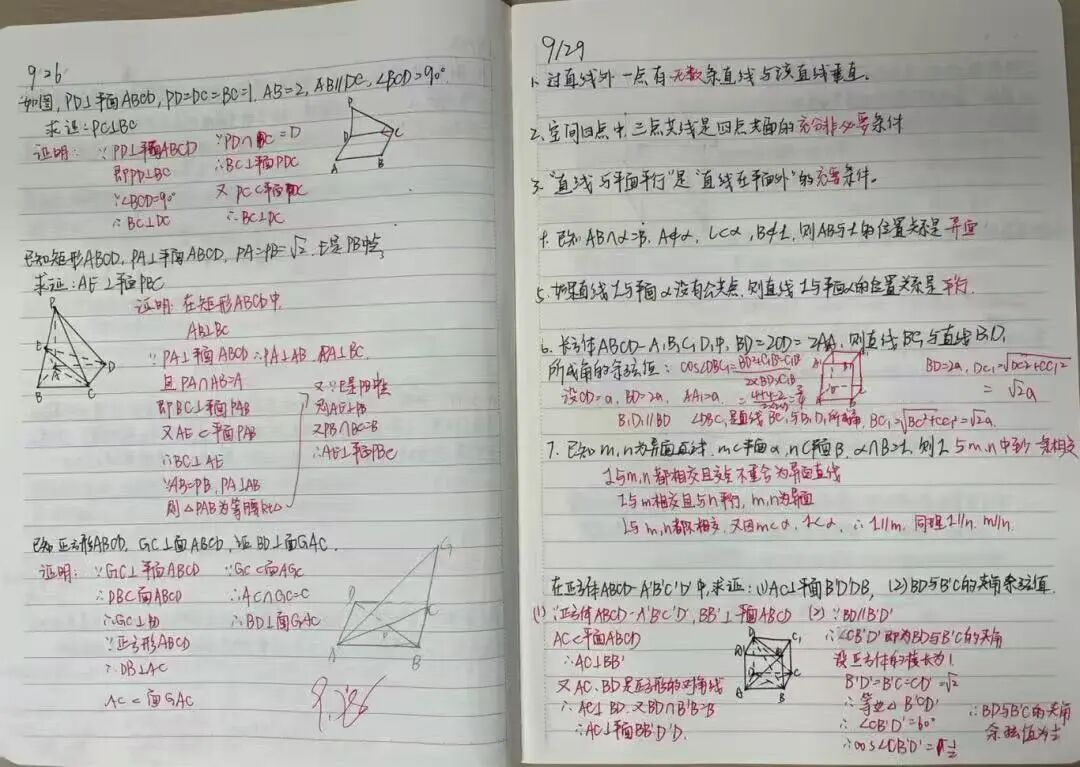 9.26
如图,PD⊥平面ABCD,PD=DC=BC=1,AB=2,AB∥DC,∠BCD=90°
求证:PC⊥BC
证明: ∵PD⊥平面ABCD ∵PD∩BC=D
即PD⊥BC ∴BC⊥平面PDC
∵∠BCD=90° 又PC⊂平面PDC
∴BC⊥DC ∴BC⊥DC
P
D
C
A
B
已知矩形ABCD,PA⊥平面ABCD,PA=PB=√2,E是PB中点
求证:AE⊥平面PBC
证明:在矩形ABCD中,
AB⊥BC
∵PA⊥平面ABCD ∴PA⊥AB,PA⊥BC,
且PA∩AB=A
即BC⊥平面PAB
又AE⊂平面PAB
∴BC⊥AE
∵AB=PB,PA⊥AB
则△PAB为等腰Rt△
又∵E是PB中点
则AE⊥PB
又PB∩BC=B
∴AE⊥平面PBC
P
E
D
A
B
C
已知正方形ABCD,GC⊥面ABCD,证BD⊥面GAC.
证明: ∵GC⊥平面ABCD ∵GC⊂面AGC
∴DBC面ABCD ∴AC∩GC=C
∴GC⊥BD ∴BD⊥面GAC
∵正方形ABCD
∴DB⊥AC
AC⊂面GAC
G
D
C
A
B
9.28
9/29
1.过直线外一点有无数条直线与该直线垂直.
2.空间四点中,三点共线是四点共面的充分非必要条件
3."直线与平面平行"是"直线在平面外"的充要条件.
4.已知AB∩α=B,A∉α,l⊂α,B∉l,则AB与l的位置关系是异面
5.如果直线l与平面α没有公共点,则直线l与平面α的位置关系是平行.
6.长方体ABCD-A₁B₁C₁D₁中,BD=2CD=2AA₁,则直线BC₁与直线B₁D₁
所成角的余弦值:cos∠DBC₁=
BD=2a,DC₁=√DC²+CC₁²
=√2a
设CD=a,BD=2a,AA₁=a
B₁D₁∥BD ∠DBC₁是直线BC₁与B₁D₁所成角,BC₁=√BC²+CC₁²=√2a.
7.已知m,n为异面直线,m⊂平面α,n⊂平面β,α∩β=l,则l与m,n中至少一条相交
l与m,n都相交且交点不重合为异面直线
l与m相交且与n平行,m,n为异面
l与m,n都不相交,又因m⊂α,l⊂α,∴l∥m,同理l∥n,m∥n.
在正方体ABCD-A'B'C'D'中,求证:(1)AC⊥平面B'D'DB,(2)BD与B'C的夹角余弦值.
(1)∵正方体ABCD-A'B'C'D',BB'⊥平面ABCD
AC⊂平面ABCD
∴AC⊥BB'
又AC,BD是正方形的对角线
∴AC⊥BD,又BD∩B'B=B
∴AC⊥平面BB'D'D.
(2)∵BD∥B'D'
∴∠CB'D'即为BD与B'C的夹角
设正方体的棱长为1
B'D'=B'C=CD'=√2
∴等边△B'CD'
∴∠CB'D'=60°
∴cos∠CB'D'=1/2
∴BD与B'C的夹角
余弦值为½